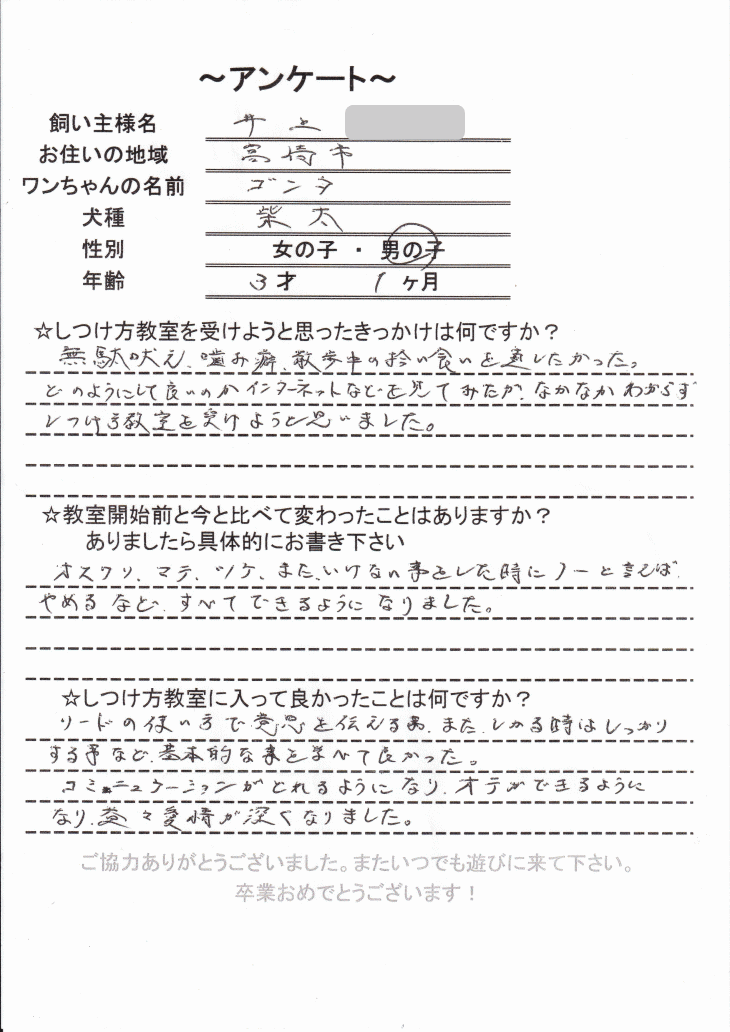 ～アンケート～
飼い主様名 井上
お住いの地域 高崎市
ワンちゃんの名前 ゴンタ
犬種 柴犬
性別 女の子 ・ 男の子
年齢 3才 1ヶ月
☆しつけ方教室を受けようと思ったきっかけは何ですか？
無駄吠え、噛み癖、散歩中の拾い食いを直したかった。
どのようにして良いのかインターネットなどを見てみたが、なかなかわからず
しつけ方教室を受けようと思いました。
☆教室開始前と今と比べて変わったことはありますか？
ありましたら具体的にお書き下さい
オスワリ、マテ、ツケ、また、いけない事をした時にノーと言えば
やめるなど、すべてできるようになりました。
☆しつけ方教室に入って良かったことは何ですか？
リードの使い方で意思を伝える事、また、しかる時はしっかり
する事など、基本的な事を学べて良かった。
コミュニケーションがとれるようになり、オテができるように
なり、益々愛情が深くなりました。
ご協力ありがとうございました。またいつでも遊びに来て下さい。
卒業おめでとうございます！